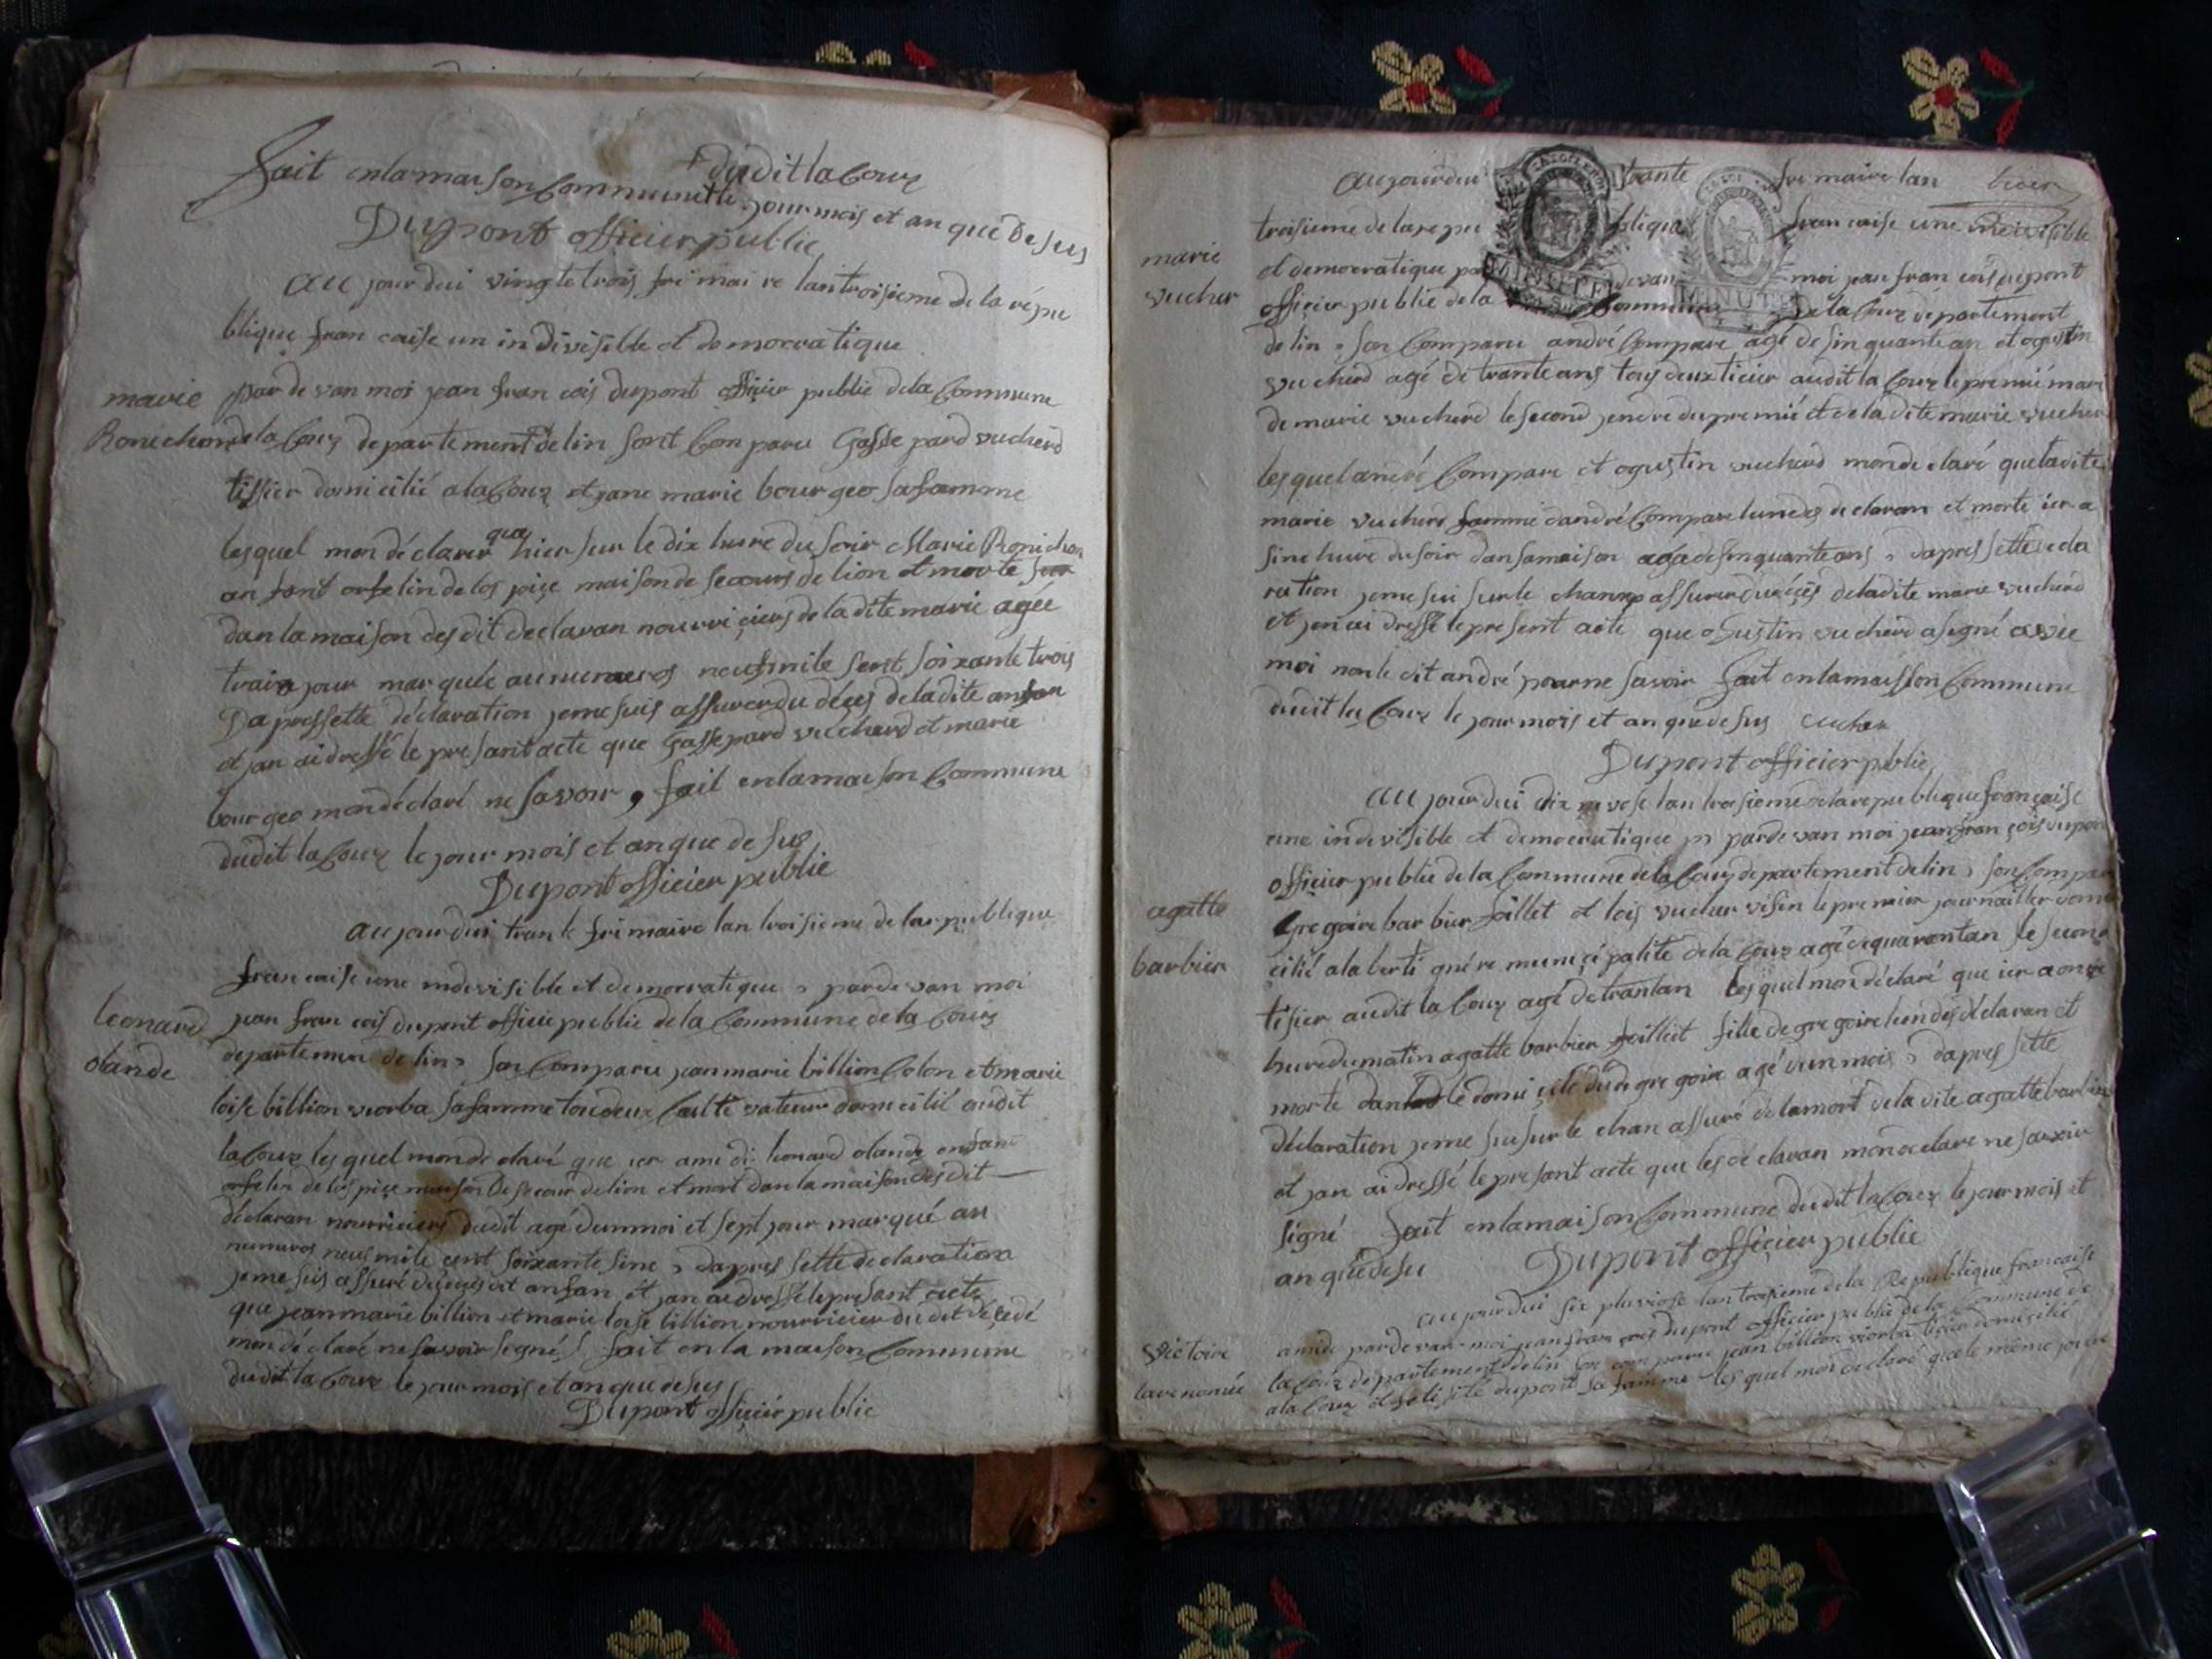 dudit la Couz
fait en la maison Communette jour mois et an que de sus
Dupont officier public
au jour dui vingte trois fri mai re lan troisieme de la répu
blique fran caise un indivisible et demorratique
marie
Ronichon
par de van moi jean fran cois dupont officier public dela Commune
dela Couz departement de lin sont Comparu Gassepard vucherd
tissier domicilié a la Couz et jane marie bourgeo sa famme
lesquel mon déclarer que hier sur le dix heure du soir Marie Ronichon
an fant orfelin de los pice maison de secours de lion et morte
dan la maison des dit declaran nourriciers de la dite marie agée
traize jour marqule au numeros neufmile sent soixante trois
Dapres sette déclaration jeme suis assurer du déces de la dite anfan
et jan ai dressé le presant acte que Gassepard vucherd et marie
bourgeo mon déclaré ne savoir, fait en la maison Commune
dudit la Couz le jour mois et an que de sus
Dupont officier public
au jour dui trante frimaire lan troisieme de la republique
leonard
olande
francaise une indevisible et demorratique, par de van moi
jean fran cois dupont officie public de la Commune de la Couz
departemen de lin, son Comparu jean marie billion Colon et marie
loise billion viorba sa famme tou deux Cultivateur domicilié audit
la Couz les quel mon de claré que ier a mi di leonard olande enfant
orfelin de los pice maison de secour de lion et mort dan la maison des dit
déclaran nourriciers dudit agé dun moi et sept jour marqué au
numeros neuf mile cent soixante sine, dapres sette declaration
jeme suis assuré du déces dit anfan et jan ai dressé le presant acte
que jean marie billion et marie loise billion nourricier du dit décedé
mon dé claré ne savoir segné fait en la maison Commune
dudit la Couz le jour mois et an que de sus
Dupont officier public
au jour dui trante fri maire lan
troisieme de la repu blique fran caise une indevisible
marie
vucher
et democratique pa devan moi jean fran cois dupont
officier public de la Commune de la Couz departement
de lin, son Comparu andré Compare agé de sin quante an et ogustin
vucherd agé de trante ans tous deux ticier audit la Couz le premié mari
de marie vucherd le second jendre du premié et de la dite marie vucher
les quel andré Compare et ogustin vucherd mon de claré que la dite
marie vucherd famme dandré Compare lun des declaran et morte ier a
sine heure du soir dan sa maison agé de sinquante ans, dapres sette decla
ration jeme sui sur le chanp assurer du déçès de la dite marie vucherd
et jen ai dressé le present acte que ogustin vucherd a signé avec
moi non le dit andré pour ne savoir fait en la maisson Commune
dudit la Couz le jour mois et an que de sus vucher
Dupont officier public
au jour dui dix nivose lan troisieme de la republique françaisse
une indevisible et democratique par de van moi jean fran çois dupon
officier public de la Commune de la Couz departement de lin, son Compar
agatte
barbier
Gregoire bar bier foillet et lois vucher visin le premier journailler domi
cilié a la berti gnére municipalité de la Couz agé de quarantan le second
tisier audit la Couz agé de trantan les quel mon déclaré que ier a onze
heure du matin agatte barbier foillet filie de gregoire lun des déclaran et
morte dan le domi cile dudi gregoire agé dun mois, dapres sette
déclaration jeme sui sur le chan assuré de la mort de la dite agatte barbier
et jan ai dressé le present acte que les dé claran mon declare ne savoir
signé fait en la maison Commune dudit la Couz le jour mois et
an que de su Dupont officier public
au jour dui six pluviose lan troisieme de la Republique francaise
victoire
la renomée
a midi par de van moi jean fran cois dupont officier public de la Commune de
la Couz departement de lin son com paru jean billion viorba tisier domicilié
a la Couz et feli sité dupont sa famme les quel mon declaré que le même jour